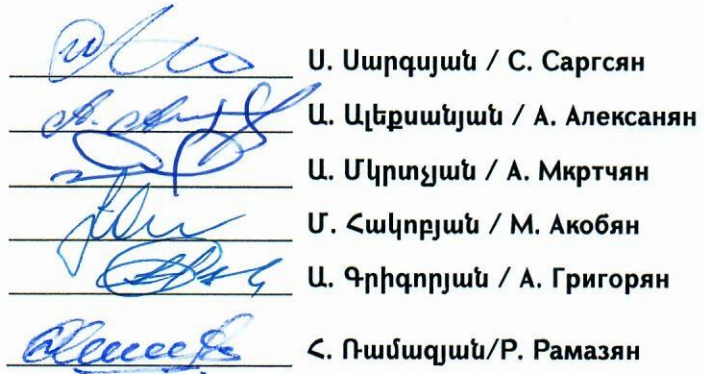 Ս. Սարգսյան / С. Саргсян
Ա. Ալեքսանյան / А. Алексанян
Ա. Մկրտչյան / А. Мкртчян
Մ. Հակոբյան / М. Акобян
Ա. Գրիգորյան / А. Григорян
Հ. Ռամազյան/Р. Рамазян